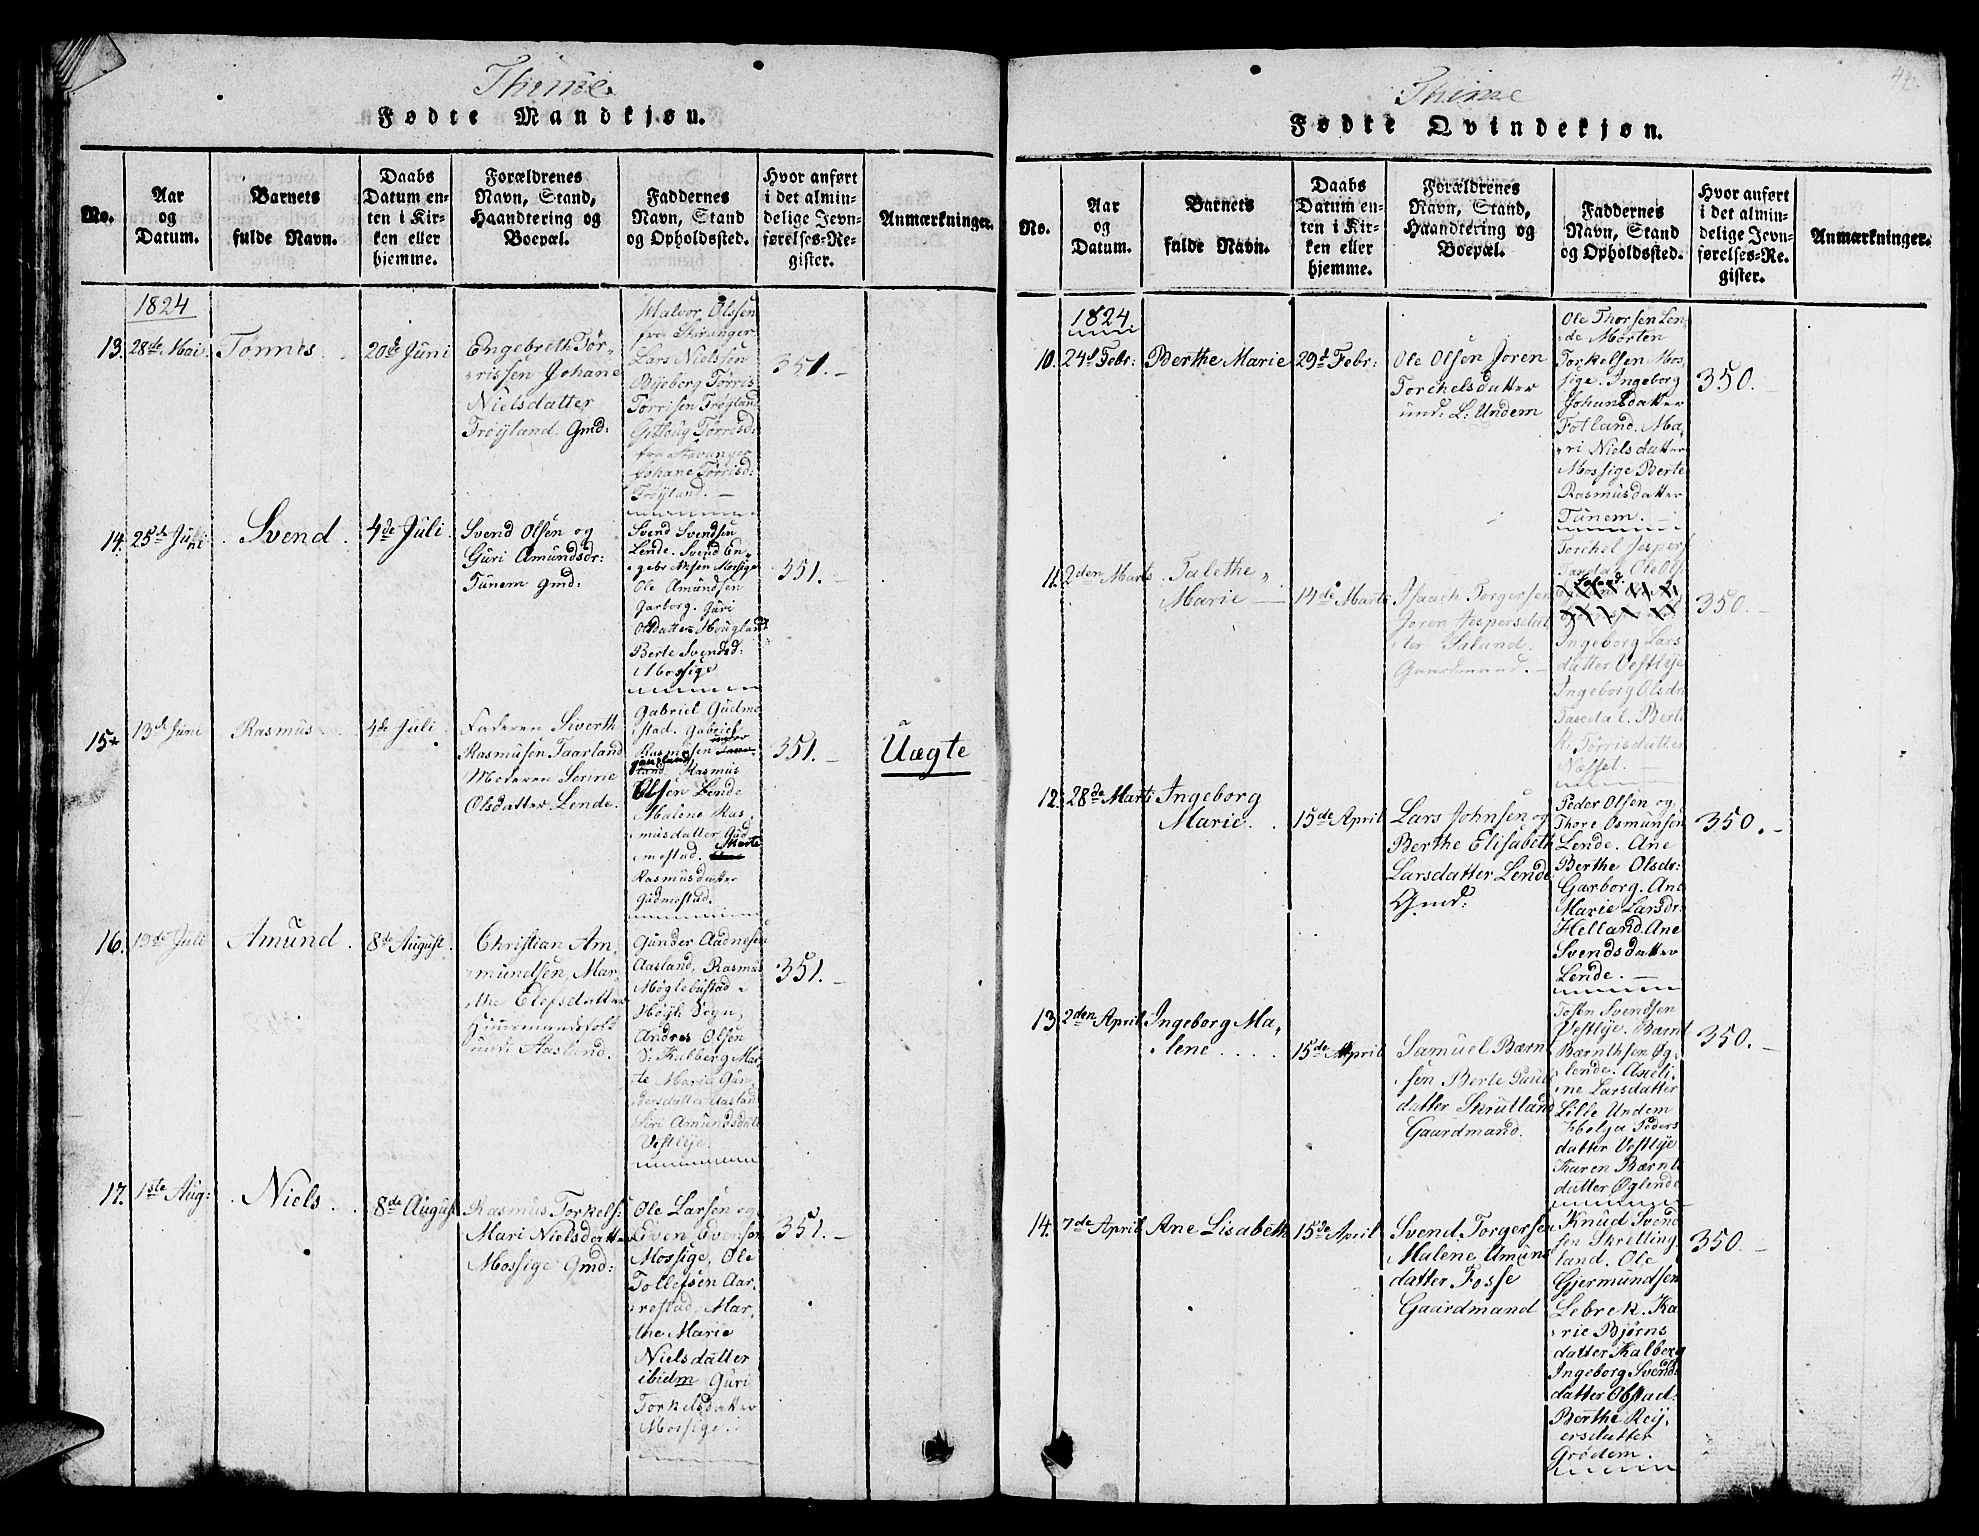 Thime
Fødte Mandkjøn.
No.
Aar
og
Datum.
Barnets
fulde Navn.
Daabs
Datum en-
ten i Kir-
ken eller
hjemme.
Forældrenes
Navn, Stand,
Haandtering og
Boepæl.
Faddernes
Navn, Stand
og Opholdssted.
Hvor anført
i det almin-
delige Jevn-
førelses-Re-
gister.
Anmærkninger.
1824
13. 28de Mai. Tonnes 20de Juni
Engebreth Tør-
rissen Johane
Nielsdatter
Trøyland. Gmd:
Halvor Olssen
fra Stavanger
Lars Nielssen
Bjeberg Tørris
Torrisen Trøyland
Gitloug Torrisd:
fra Stavanger
Johane Tørrisd:
Trøyland.
351.
14. 25de Juni Svend 4de Juli
Svend Olsen og
Guri Amundsdr:
Tunem gmd:
Svend Svendsen
Lende. Svend En-
gebretsen Mossige
Ole Amundsen
Garborg. Guri
Olsdatter Hougland
Berte Svendsd:
Mossige
351.
15 13de Juni Rasmus 4de Juli
Faderen Siverth
Rasmusen Taarland
Moderen Serine
Olsdatter Lende.
Gabriel Gudme-
stad. Gabriel
Rasmusen
Rasmus
Olsen Lende
Malene Ras-
musdatter Gud-
mestad. Marte
Rasmusdatter
Gudmestad.
351.
Uægte
16. 19de Juli Amund 8de August.
Christian Am-
mundsen, Mar-
the Elefsdatter
Huusmandsfolk
und: Aasland.
Gunder Aadnesen
Aasland, Rasmus
Møglebustad
Høyl: Sogn,
Andres Olsen
S: Kalberg Mar-
te Marie Gun-
dersdatter Aasland
Siri Amundsdatr
Vestlye.
351.
17. 1ste Aug: Niels 8de August
Rasmus Torkels:
Mari Nielsdatter
Mossige Gmd:
Ole Larsen og
Even Evensen
Mossige, Ole
Tollefsen Aar-
restad, Mar-
the Marie
Nielsdatter
ibidm Guri
Torkelsdatter
Mossige.
351.
42.
Thime
Fødte Qvindekjøn.
No.
Aar
og
Datum.
Barnets
fulde Navn.
Daabs
Datum en-
ten i Kir-
ken eller
hjemme.
Forældrenes
Navn, Stand,
Haandtering og
Boepæl.
Faddernes
Navn, Stand
og Opholdssted.
Hvor anført
i det almin-
delige Jevn-
førelses-Re-
gister.
Anmærkninger.
1824
10. 24d Febr: Berthe Marie 29d Febr:
Ole Olsen Joren
Torchelsdatter
und: L: Undem
Ole Thorsen Len-
de Morten
Torkelsen Mos-
sige. Ingeborg
Johansdatter
Fotland. Ma-
ri Nielsdatter
Mossige Berte
Rasmusdatter
Tunem.
350.
11. 2den Marts Talethe
Marie 14de Marts
Isaach Torgersen
Joren Jespersdat-
ter Saland.
Gaardmand.
Torchel Jespers:
Tasdal Ole Ols:
Saland.
Ingeborg Lars
datter Vestlye
Ingeborg Olsdr:
Tasedal. Berte
K. Tørrisdatter
Næsset.
350.
12. 28de Marts Ingeborg
Marie. 15de April
Lars Johnsen og
Berthe Elisabeth
Larsdatter Lende
Gmd:
Peder Olsen og
Thore Osmunsen
Lende. Ane
Berthe Olsdr:
Garborg. Ane
Marie Larsdr:
Helland. Ane
Svendsdatter
Lende.
350.
13. 2den April Ingeborg Ma-
lene 15de April
Samuel Bærnt
sen Berte Pauls
datter Skrutland
Gaardmand.
Tosten Svendsen
Vestlye. Bærnt
Bærnthsen Øg-
lende. Axeli-
ne Larsdatter
Lille Undem
Helga Peders
datter Vestlye
Karen Bærnts
datter Øglende
350.
14. 7de April Ane Lisabeth 15de April
Svend Torgersen
Malene Amund
datter Fosse
Gaardmand
Knud Svend
sen Skretting-
land. Ole
Gjermundsen
Lebrek. Ka-
rie Bjørns
datter Kalberg
Ingeborg Svends
datter Obstad.
Berthe Reij-
ersdatter
Grødem.
350.